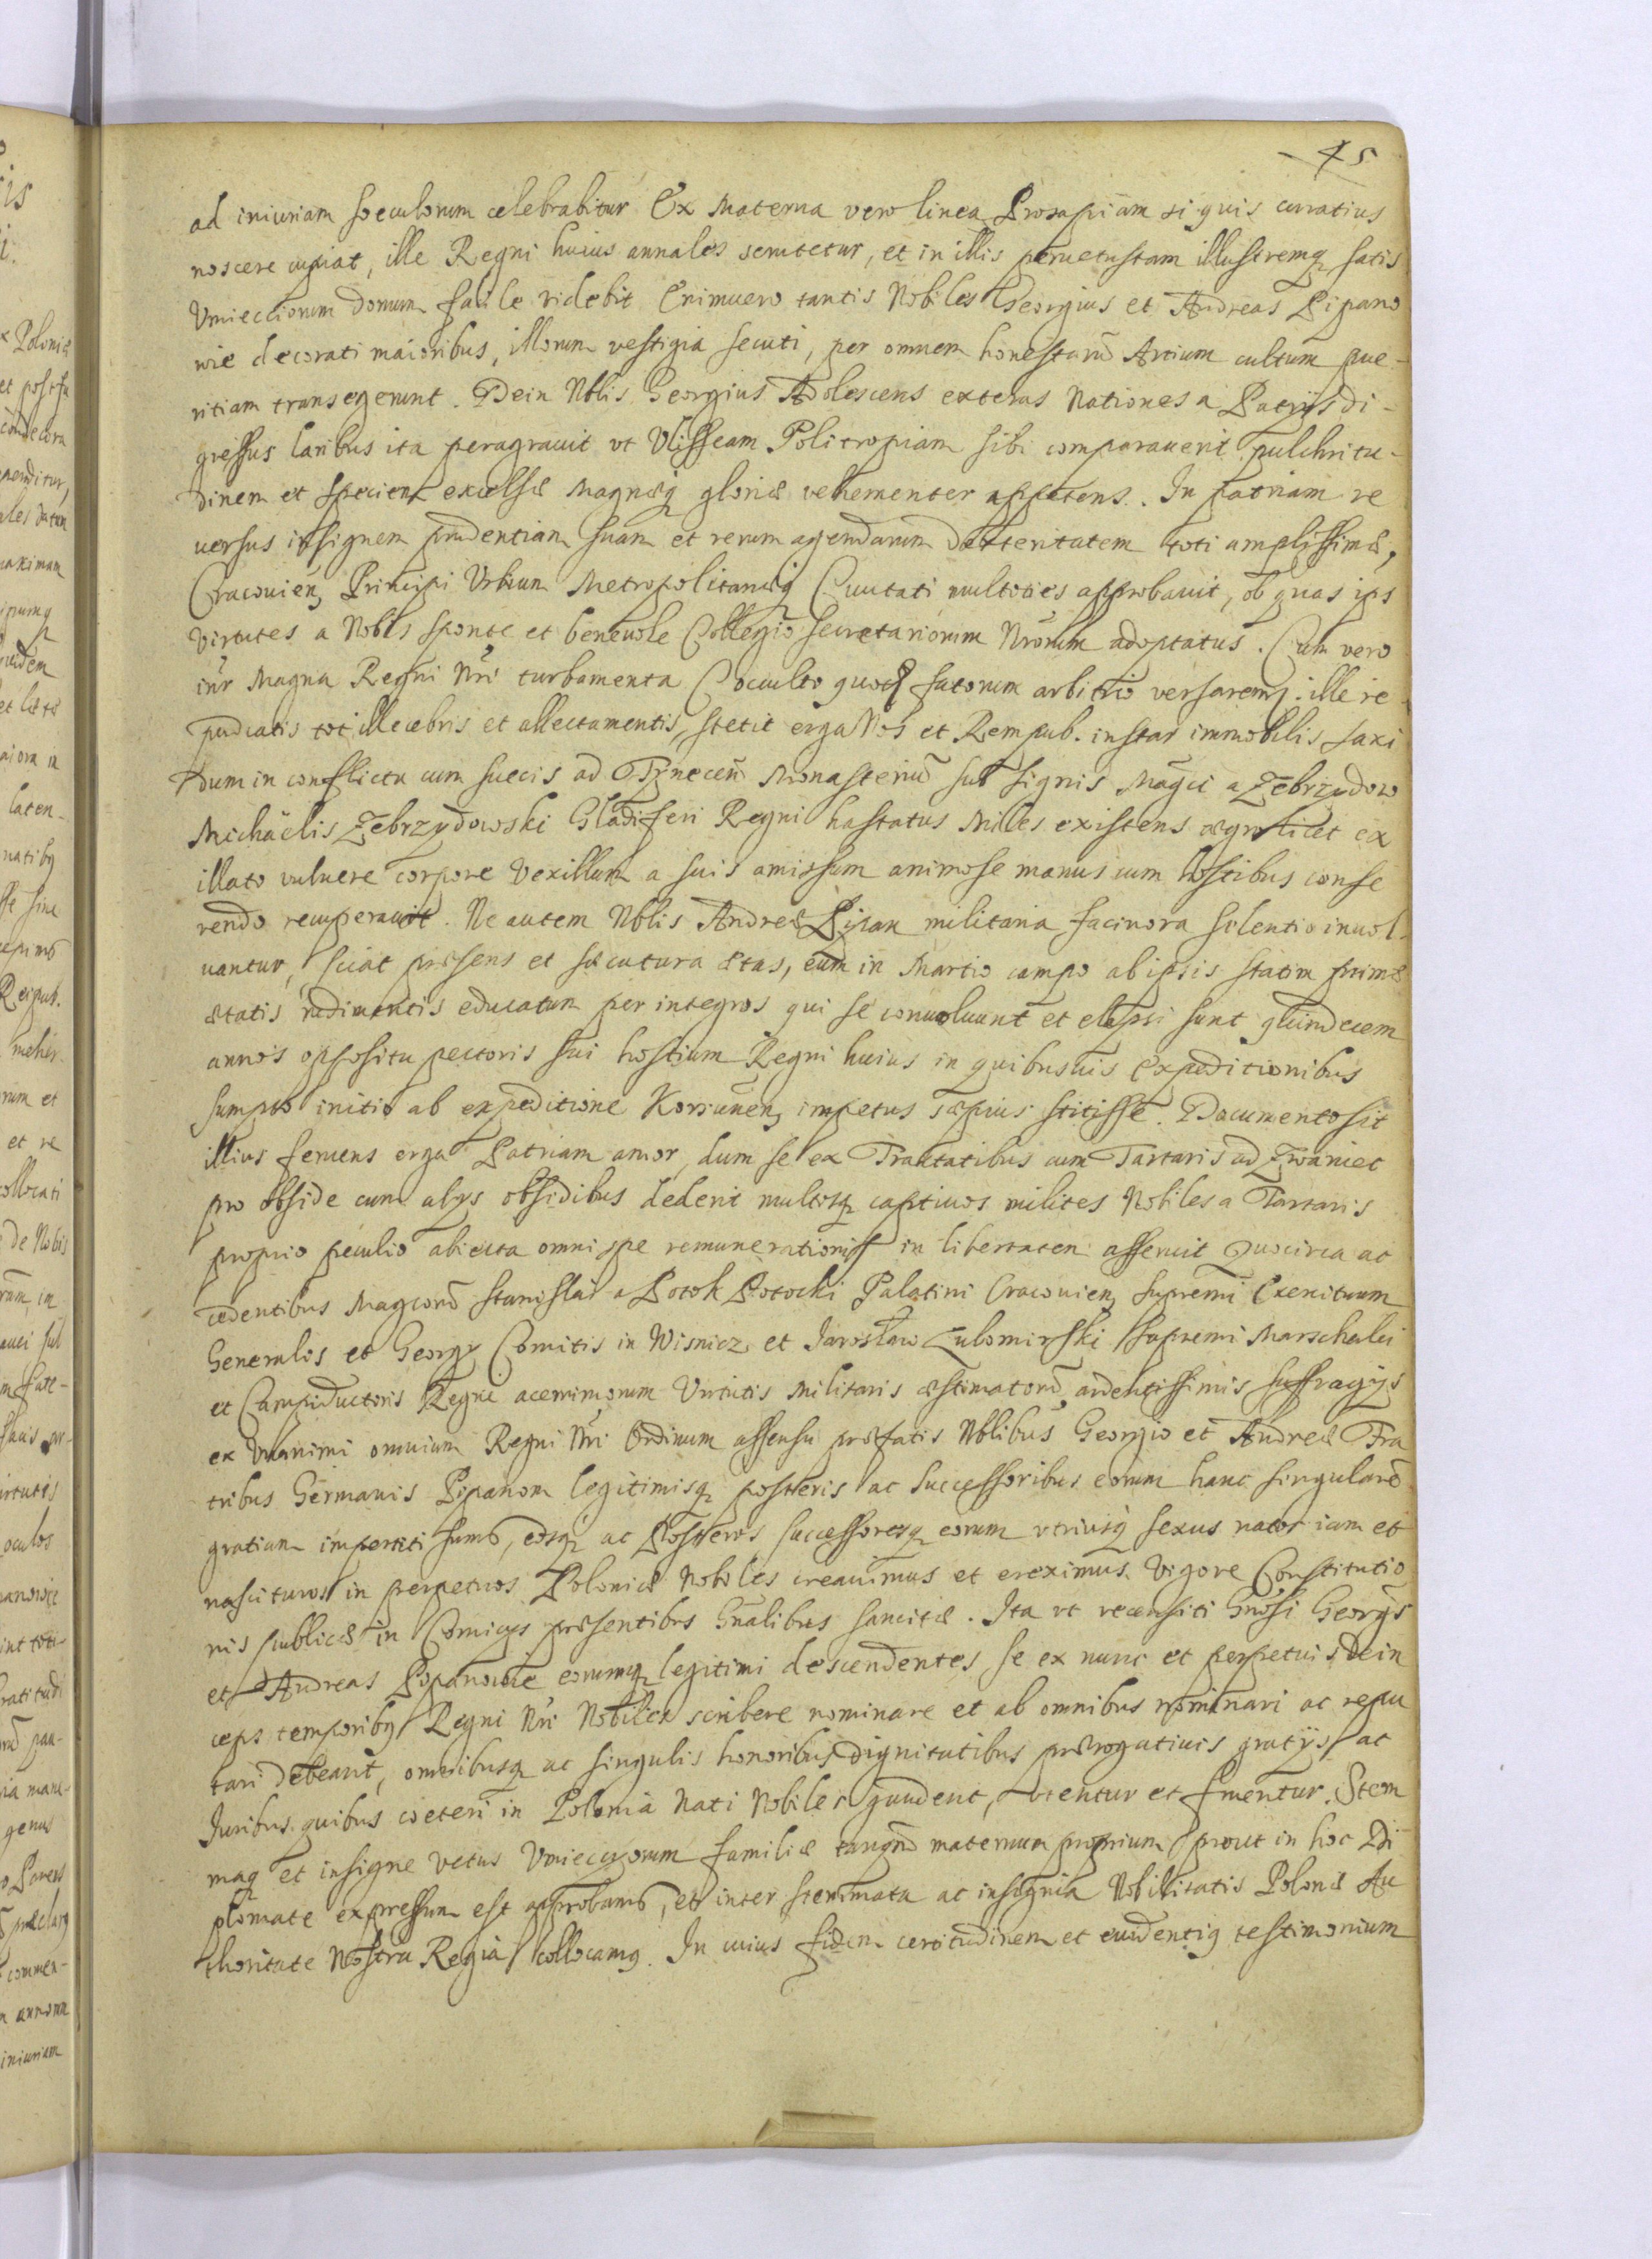 45
ad iniuriam sæculorum celebrabitur Ex Materna vero linea Prosapiam si quis curatius
noscere cupiat, ille Regni huius annales scrutetur, et in illis peruetustam illustremq satis
Vmiecciorum Domum facile videbit Enimuero tantis Nobiles Georgius et Andreas Pipano
wie decorati maioribus, illorum vestigia secuti, per omnem honestarū Artium cultum pue-
ritiam transegerunt. Dein Nblis Georgius Adolescens exteras Nationes a Patrijs di-
gressus laribus ita peragrauit vt Vlisseam Politropiam sibi comparauerit pulchritu-
dinem et speciem excelsæ Magnæq gloriæ vehementer appetens. In patriam re
uersus insignem prudentiam suam et rerum agendarum Dexteritatem toti amplissimæ,
Cracouien, Principi Vrbium Metropolitanæq Ciuitati multoties approbauit, ob quas ips
virtutes a Nobis sponte et beneuole Collegio secretariorum Nrorum adoptatus. Cum vero
intr Magna Regni Nri turbamenta Occulto quod fatorum arbitrio versaremq. ille re-
pudiatis tot illecebris et allectamentis, stetit erga Nos et Rempub. instar immobilis saxi
Dum in conflictu cum suecis ad Tynecen Monasteriū sub signis Magci a Zebrzydow
Michaelis Zebrzydowski Gladiferi Regni hastatus Miles existens ægro licet ex
illato vulnere corpore Vexillum a suis amissum animose manus cum hostibus conse
rendo recuperauit. Ne autem Nblis Andreæ Pipan militaria facinora silentio inuol-
uantur, sciat præsens et secutura ætas, eum in Martio campo ab ipsis statim primæ
ætatis rudimentis educatum per integros qui se conuoluunt et elapsi sunt quindecem
annos oppositu pectoris sui hostium Regni huius in quibusuis Expeditionibus
sumpto initio ab expeditione Korsunen, impetus sæpius stitisse. Documento sit
illius feruens erga Patriam amor, dum se ex Traktatibus cum Tartaris ad Zwaniec
pro obside cum alijs obsidibus dederit multosq captiuos milites Nobiles a Tartaris
proprio peculio abiecta omni spe remunerationis in libertatem asseruit Quocirca ac
cedentibus Magcorū Stanislai a Potok Potocki Palatini Cracouien, Supremi Exercituum
Generalis et Georgy Comitis in Wisnicz et Jaroslaw Lubomirski Supremi Marschalci
et Campiductoris Regni acerrimorum Virtutis Militaris æstimatorū ardentissimis suffragijs
ex vnanimi omnium Regni Nri Ordinum assensu præfatis Nblibus Georgio et Andreæ Fra
tribus Germanis Pipanom legitimisq posteris ac successoribus eorum hanc singularē
gratiam impertiti sumus, eosq ac Posteros successoresq eorum vtriusq sexus natos iam et
nascituros in perpetuos Poloniæ Nobiles creauimus et ereximus Vigore Constitutio
nis publicæ in Comicijs præsentibus Gnalibus sancitæ. Ita vt recensiti Gnosi Georgs
et Andreas Pipanowie eorumq legitimi descendentes se ex nunc et perpetuis dein
ceps temporibq Regni Nri Nobiles scribere nominare et ab omnibus nominari ac repu
tari debeant, omnibusq ac singulis honoribus dignitatibus prærogatiuis gratijs ac
Juribus quibus cœteri in Polonia Nati Nobiles gaudent, vtentur et fruentur. Stem
maq et insigne vetus Vmieccyorum familiæ tanqm maternum proprium prout in hoc Di
plomate expressum est approbamus, et inter stemmata ac insignia Nobilitatis Polonæ Au
thoritate Nostra Regia collocamq. In cuius fidem certitudinem et euidentiq testimonium